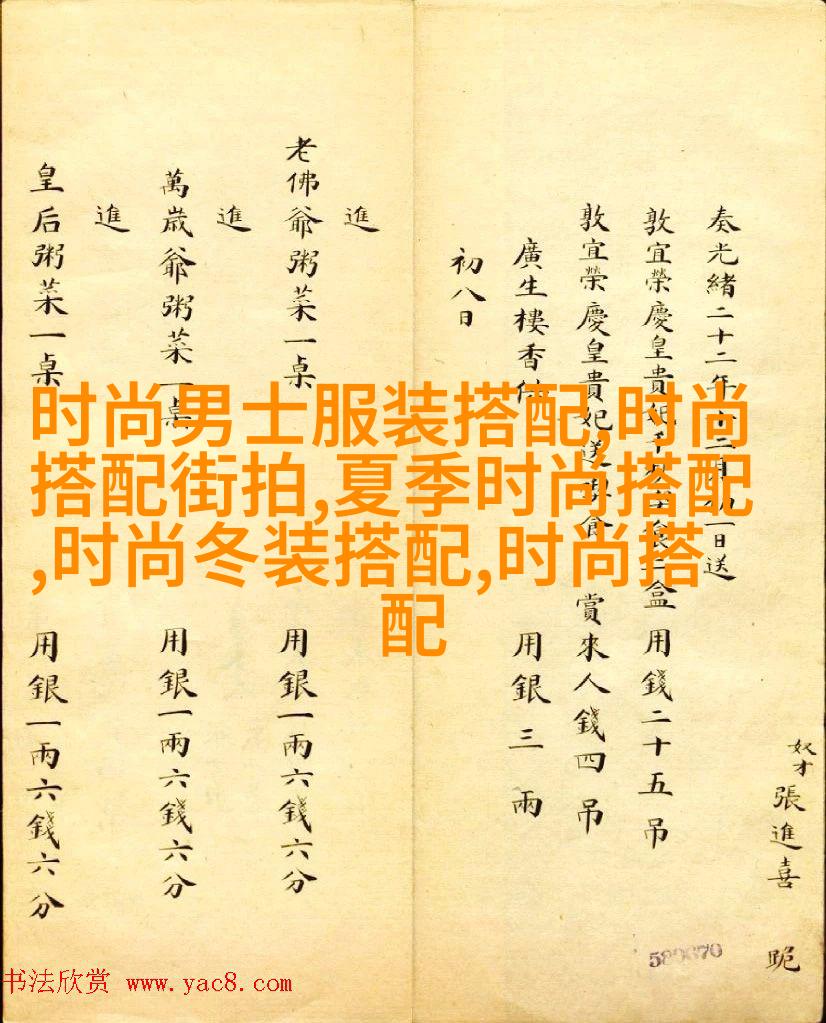 奴才張進喜 跪
奏光緒二十二年十二月初一日送
敦宜榮慶皇貴妃 盒 用錢二十五吊
敦宜榮慶皇貴妃送 食 賞來人錢四吊
廣生樓香供 用銀三兩
初八日
進
老佛爺粥菜一桌 用銀一兩六錢六分
進
萬歲爺粥菜一桌 用銀一兩六錢六分
進
皇后粥菜一桌 用銀一兩六錢六分
时尚男士服装搭配,时尚
搭配街拍,夏季时尚搭配
,时尚冬装搭配,时尚搭
配
589670
书法欣赏 www.yac8.com